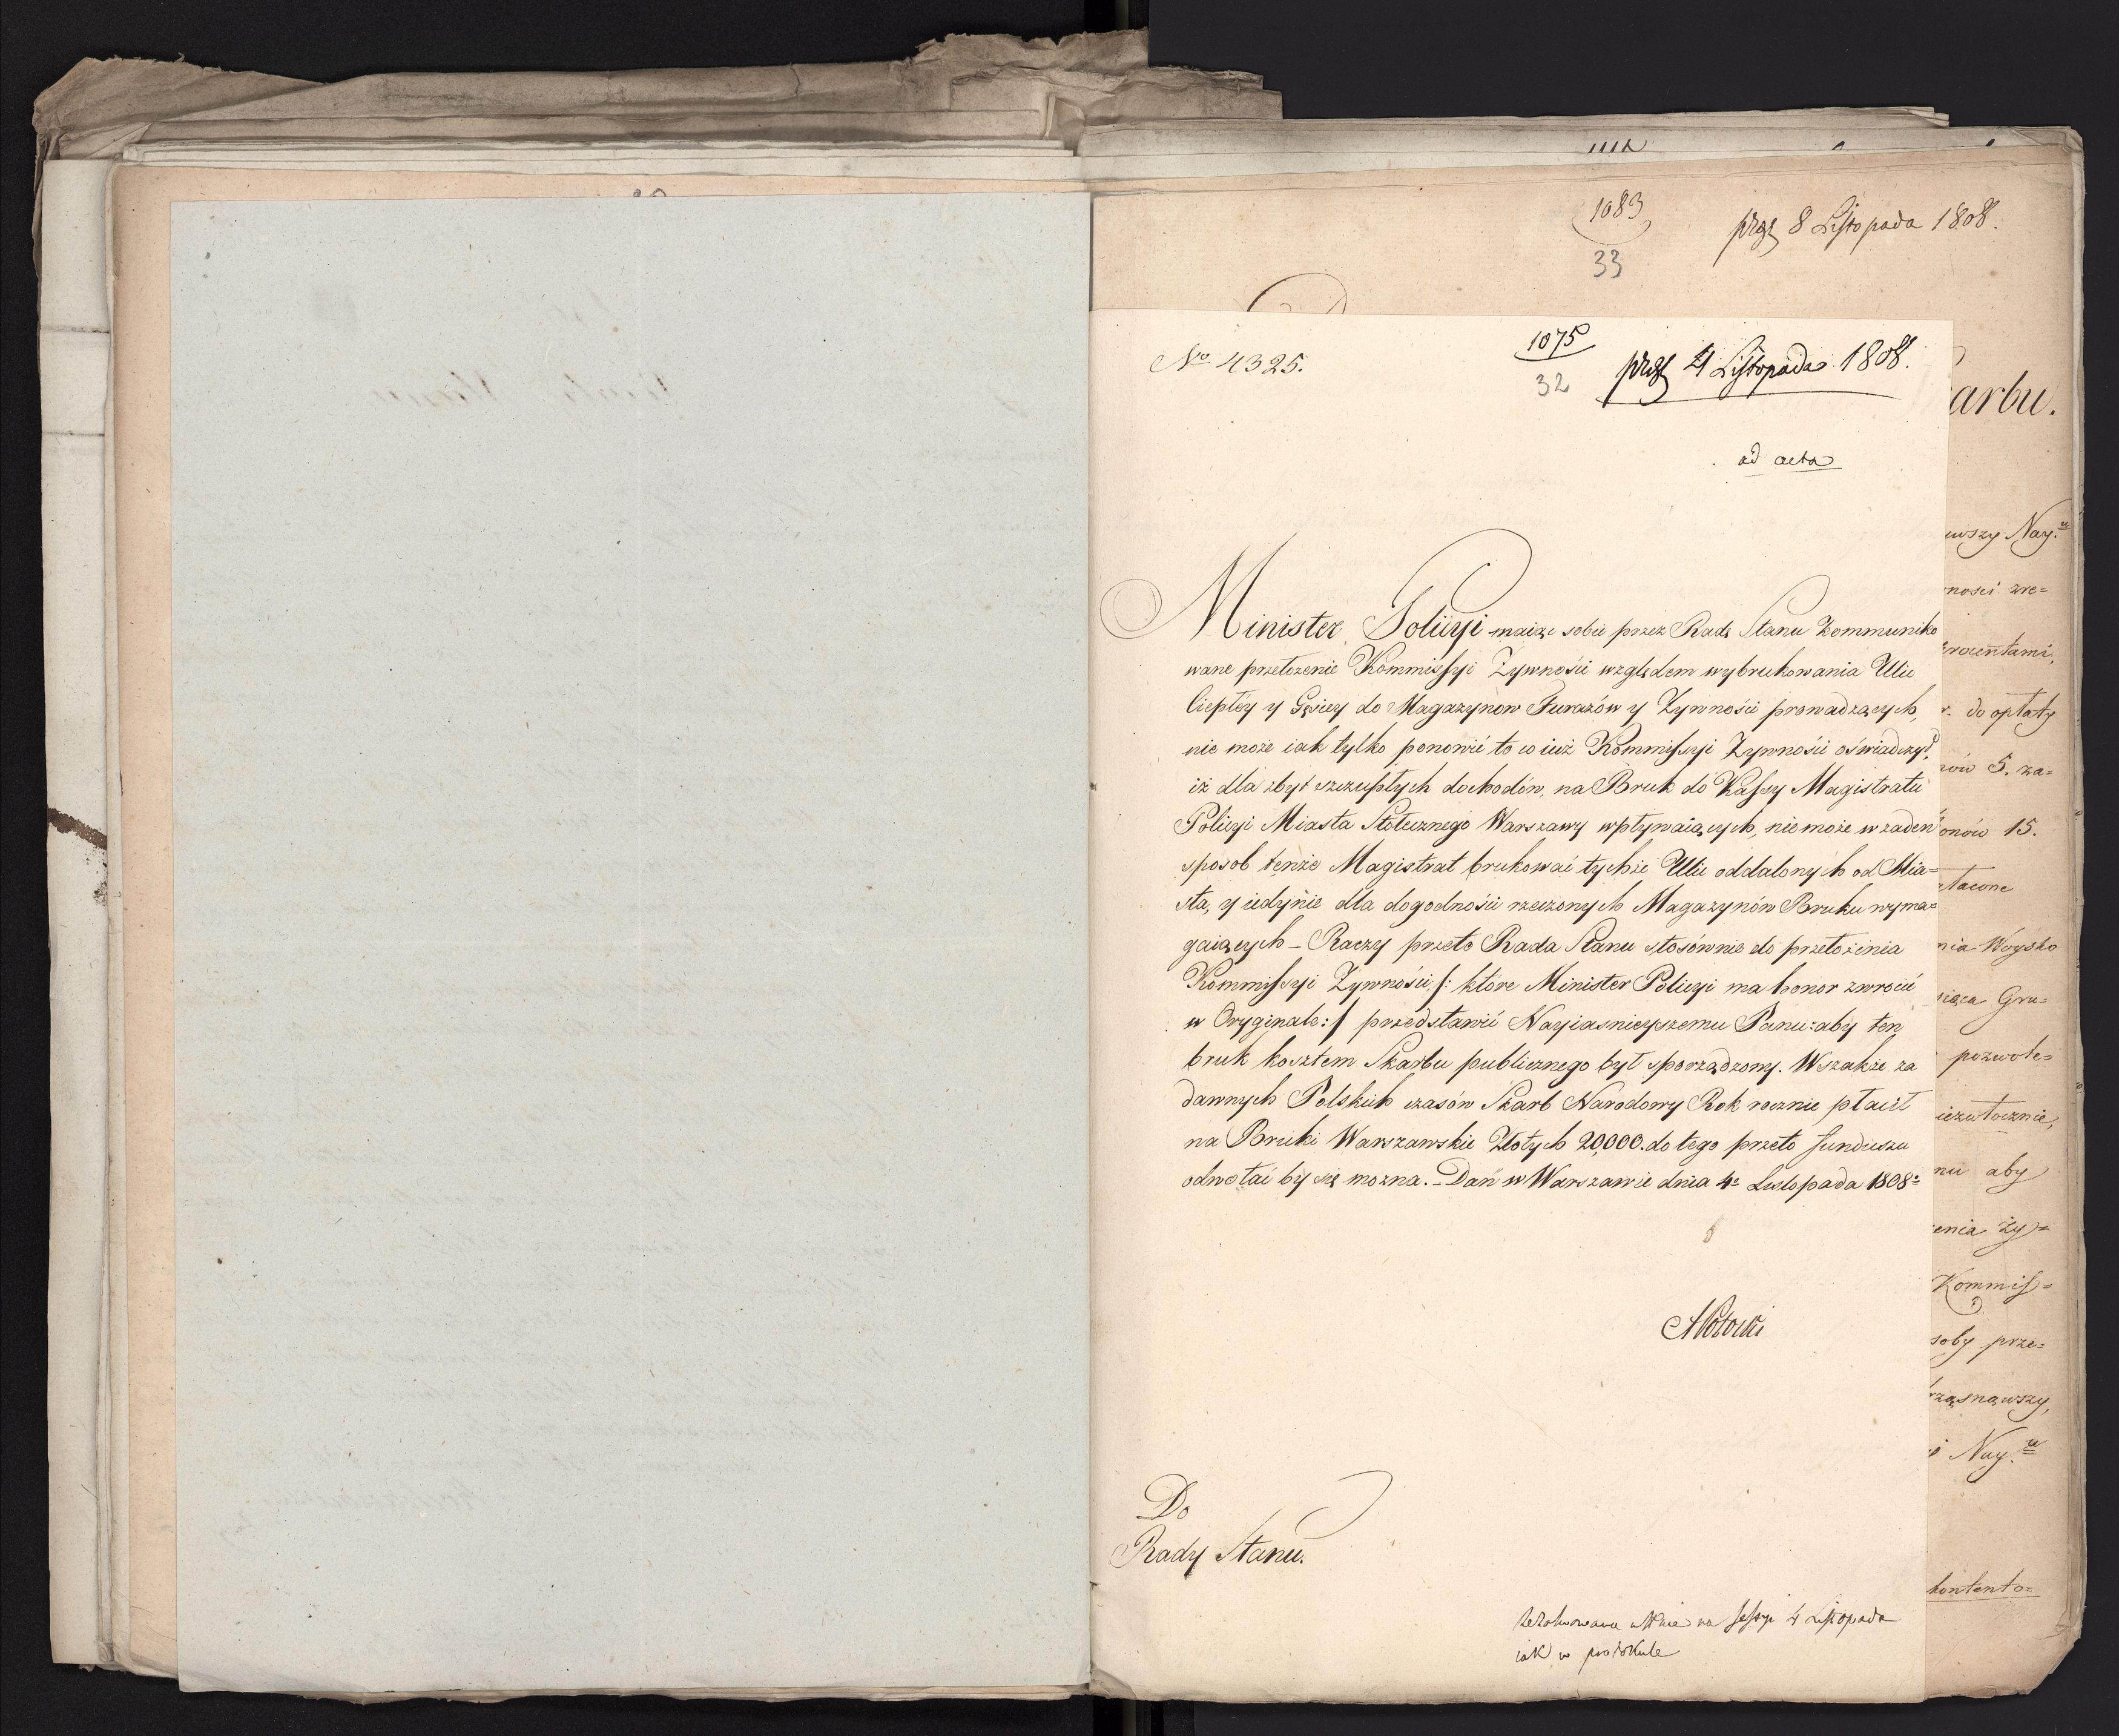 1083
33
8 Listopada 1808.
arbu.
No 4325.
1075
32
4 Listopada 1808.
ad acta
Minister Policyi maiąc sobie przez Radę Stanu kommuniko
wane przełożenie Kommissyi Żywności względem wybrukowania Ulic
Ciepłéy y Gęsiey do Magazynow Furażów y Żywności prowadzących,
nie może iak tylko ponowić to co iuż Kommissyi Żywności oświadczył,
iż dla zbyt szczupłych dochodów, na Bruk do Kassy Magistratu
Policyi Miasta Stołecznego Warszawy wpływaiących, nie może w żaden
sposob tenże Magistrat brukować tychże Ulic oddalonych od Mia=
sta, y iedynie dla dogodności rzeczonych Magazynów Bruku wyma=
gaiących – Raczy przeto Rada Stanu stosównie do przełożenia
Kommissyi Żywności /: ktore Minister Policyi ma honor zwrócić
w Oryginale :/ przedstawić Nayiasnieyszemu Panu: aby ten
bruk kosztem Skarbu publicznego był sporządzony. Wszakże za
dawnych Polskich czasów Skarb Narodowy Rok rocznie płacił
na Bruki Warszawskie Złotych 20,000. do tego przeto funduszu
odwołać by się można. – Dań w Warszawie dnia 4o Listopada 1808o
APotocki
Do
Rady Stanu.
na sessyi 4 Listopada
iak w protokule
wszy Nay.u
nosci zre=
rocentami,
r. do opłaty
5. za=
onów 15.
nia Woysko
siąca Gru=
pozwole=
nu aby
enia ży=
Kommis=
soby prze=
Nay.u
kontento=